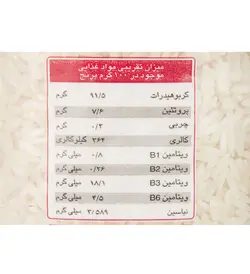 میزان تقریبی مواد غذایی
موجود در ۱۰۰ گرم برنج
کربوهیدرات ۹۱/۵ گرم
پروتئین ۷/۶ گرم
چربی ۰/۳ گرم
کالری ۳۶۴ کیلوکالری
ویتامین B1 ۰/۸ میلی گرم
ویتامین B2 ۰/۲۶ میلی گرم
ویتامین B3 ۱۸/۱ میلی گرم
ویتامین B6 ۴/۵ میلی گرم
نیاسین ۳/۵۸۹ میلی گرم